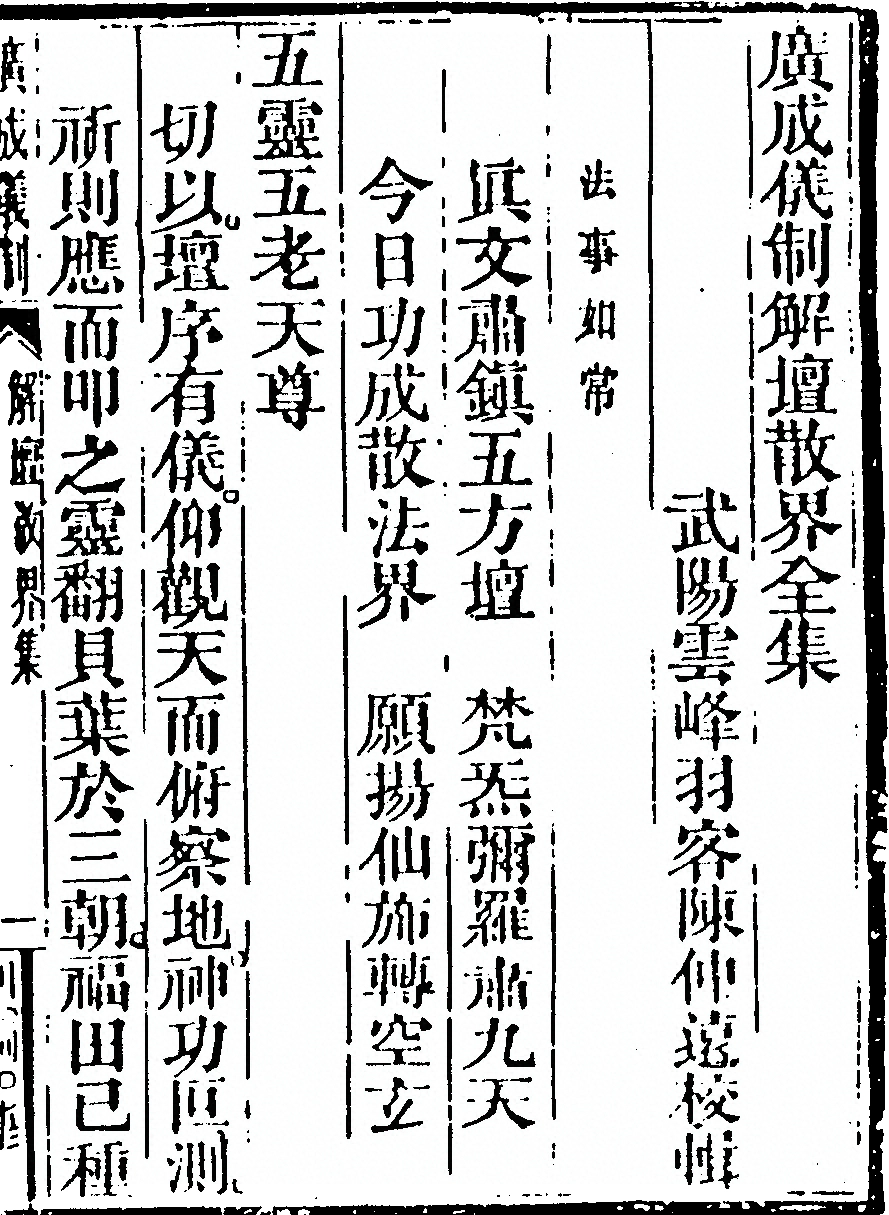 廣成儀制解壇散界全集
武陽雲峰羽客陳仲遠校輯
法事如常
眞文肅鎮五方壇　梵炁彌羅肅九天
今日功成散法界　願揚仙斾轉空玄
五靈五老天尊
切以壇序有儀仰觀天而俯察地神功叵測
祈則應而叩之靈翻貝葉於三朝福田已種
廣成儀制
解壇散界集
一